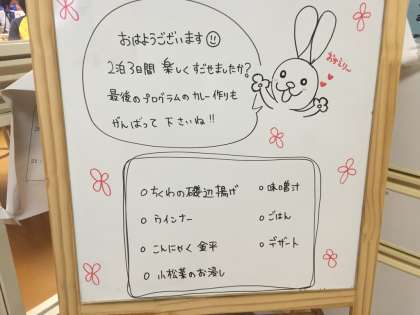 おはようございます
2泊3日間 楽しくすごせましたか?
最後のプログラムのカレー作りも
がんばって下さいね!!
○ちくわの磯辺揚げ
○ウインナー
○こんにゃく金平
○小松菜のお浸し
○味噌汁
○ごはん
○デザート